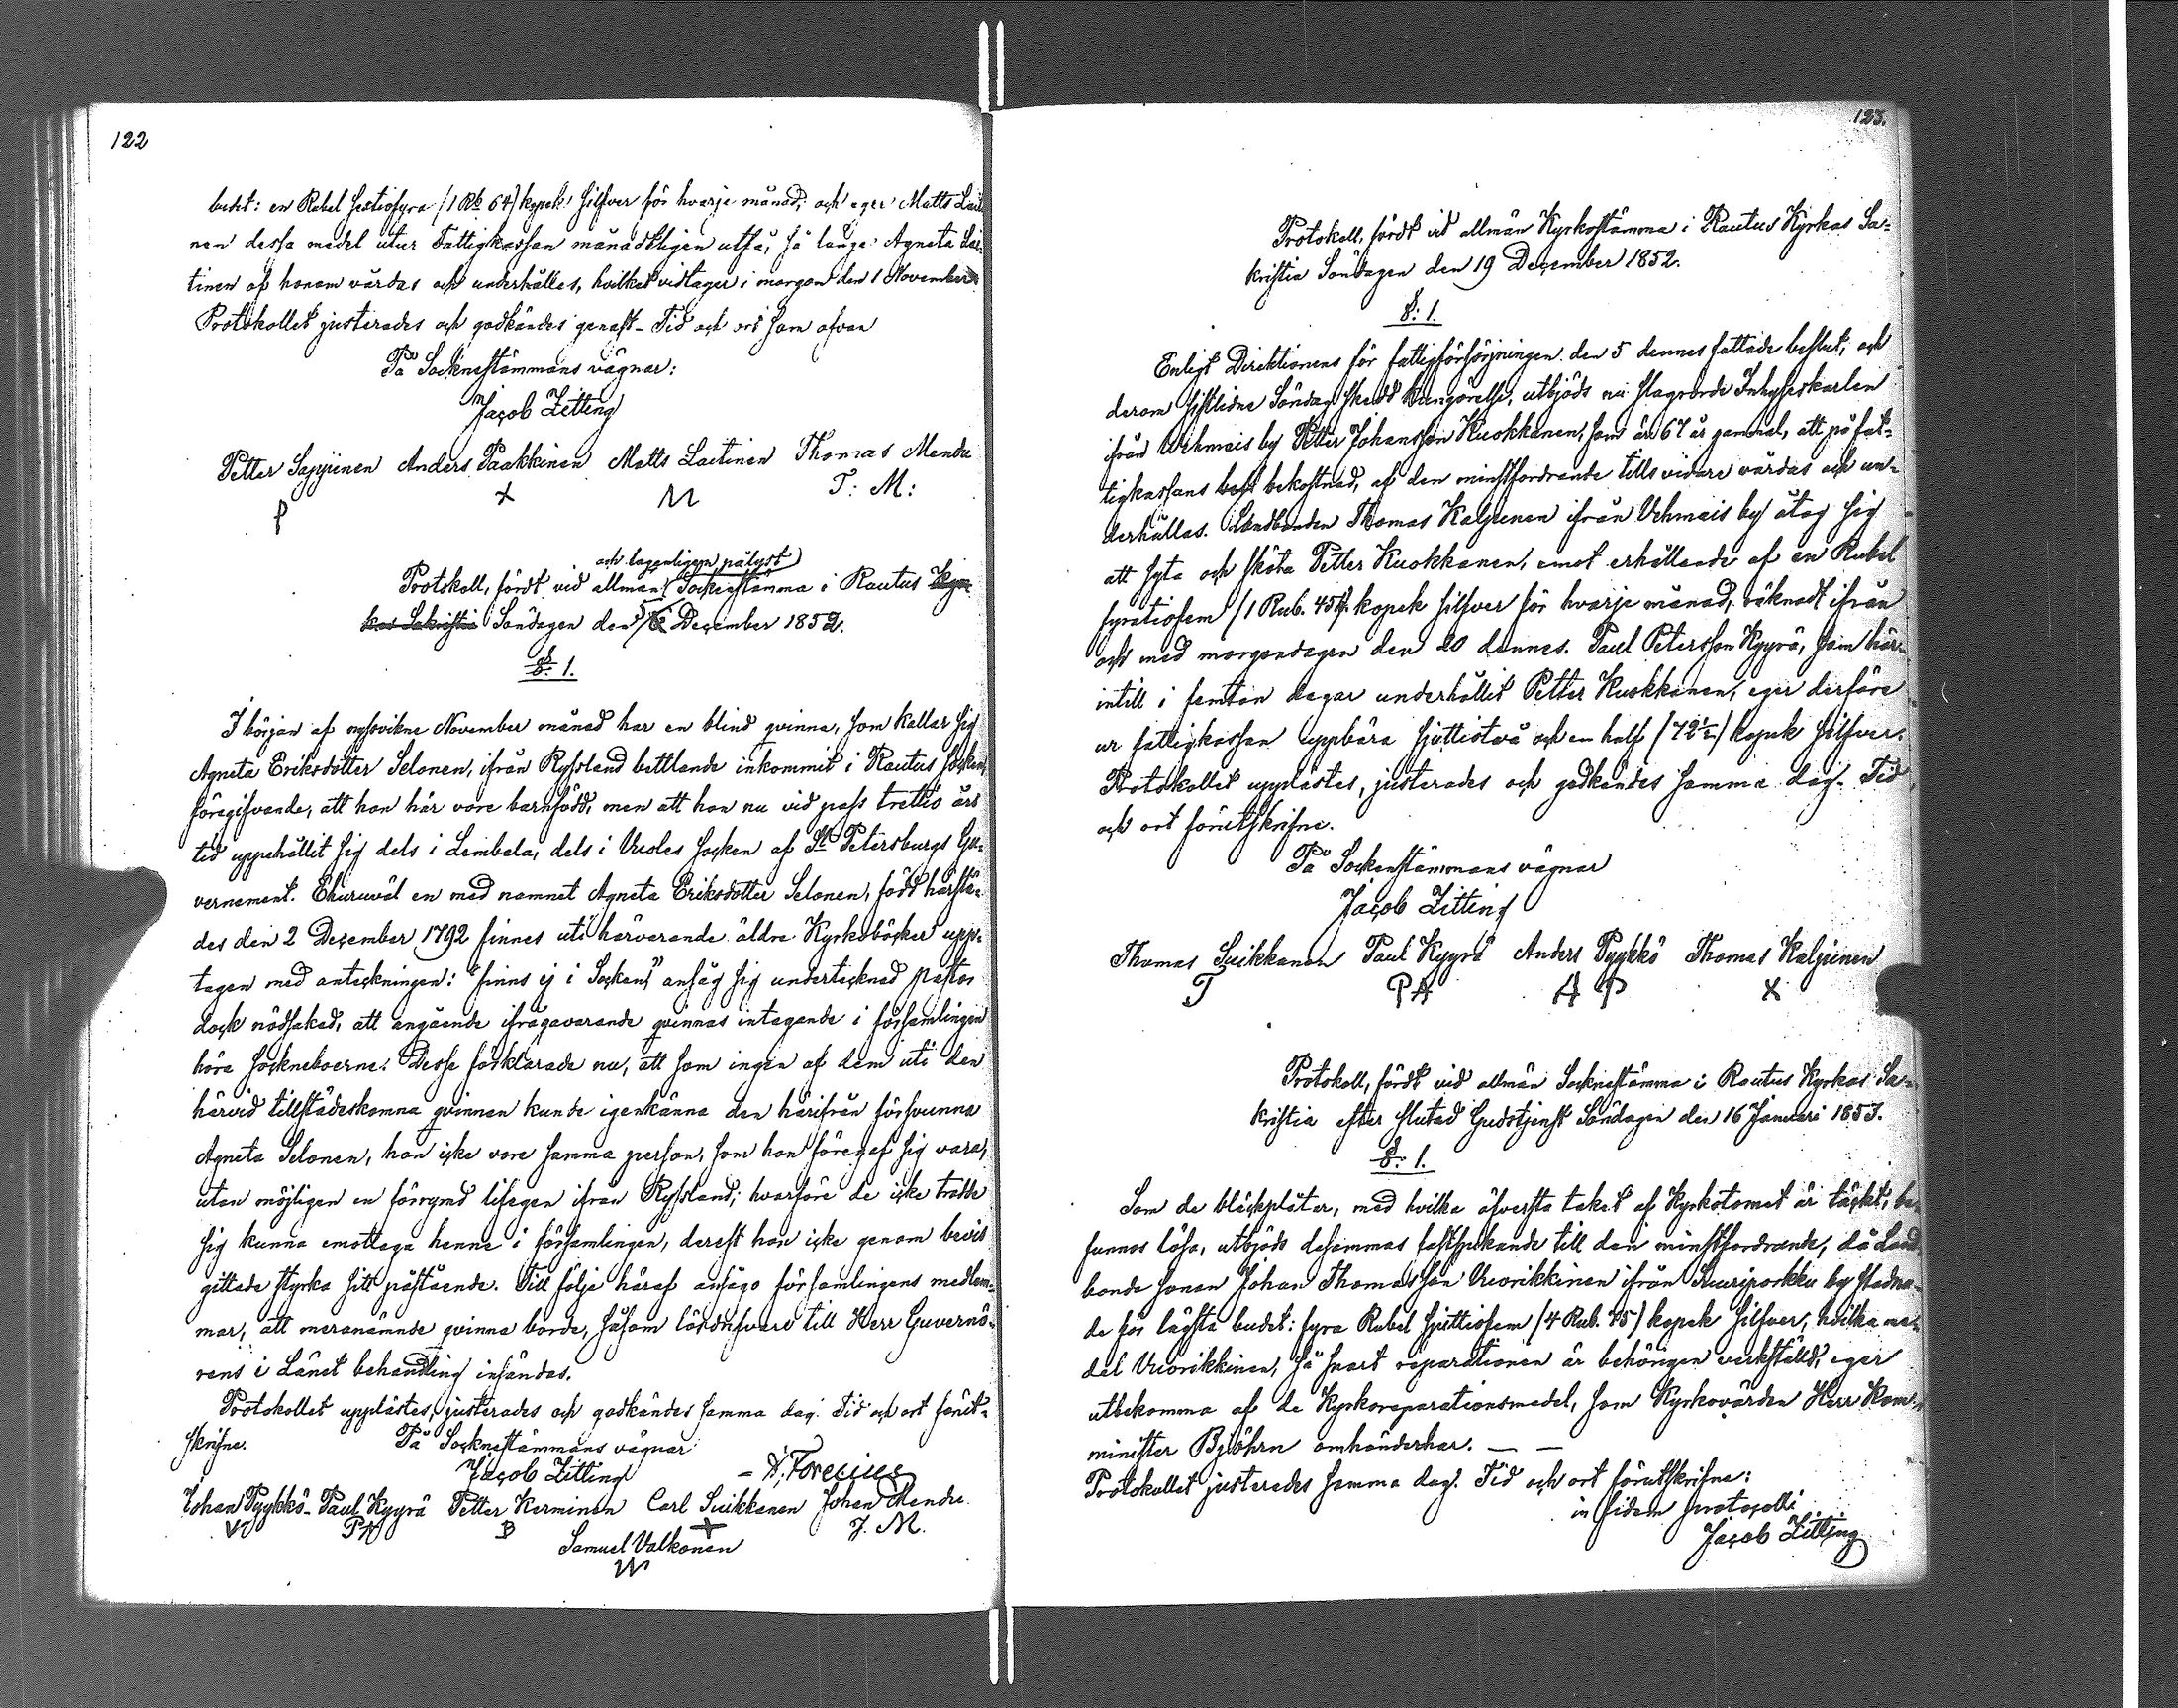 122
budet: en Rubel sextiofyra /1 Rb 64/ kopek silfver för hvarje månad; och eger Matts Lai
nen dessa medel utur Fattigkassan månadtligen utfå, så länge Agneta Lai-
tinen af honom vårdas och underhålles, hvilket vidtager i morgon den 1 November
Protokollet justerades och godkändes genast - Tid och ort som ofvan
På Socknestämmans vägnar:
Jacob Zitting
Petter Sapyinen Anders Paakkinen Matts Laitinen Thomas Mendu
P + M T: M:
och lagenligen pålyst
Protokoll, fördt vid allman Sockenstämma i Rautus Kyr-
kas Sakristia Söndagen den 5 December 1852.
§: 1.
I början af nyssvikne November månad har en blind qvinna, som kallar sig
Agneta Eriksdotter Selonen, ifrån Ryssland bettlande inkommit i Rautus socken,
föregifvande, att hon här vore barnfödd, men att hon nu vid pass trettio års
tid uppehållit sig dels i Lembela, dels i Vuoles socken af St Petersburgs Gu-
vernement. Ehuruväl en med namnet Agneta Eriksdotter Selonen, född härstä-
des den 2 December 1792 finnes uti härvarande äldre Kyrkoböcker upp-
tagen med anteckningen: "finns ej i Socken" ansåg sig undertecknad pastor
dock nödsakad, att angående ifrågavarande qvinnas intagande i församlingen
höra sockneboerne. Desse förklarade nu, att som ingen af dem uti den
härvid tillstädeskomna qvinnan kunde igenkänna den härifrån försvunna
Agneta Selonen, hon icke vore samma person, som hon föregaf sig vara,
utan möjligen en förrymd lifegen ifrån Ryssland; hvarföre de icke trodde
sig kunna emottaga henne i församlingen, derest hon icke genom bevis
gittade styrka sitt påstående. Till följe häraf ansågo församlingens medlem-
mar, att meranämnde qvinna borde, såsom lösdrifvare till Herr Guvernö-
rens i Länet behandling insändas.
Protokollet upplästes, justerades och godkändes samma dag. Tid och ort förut-
skrifne. På Socknestämmans vägnar
Jacob Zitting - A. Forelius
Johan Pyykkö - Paul Kyyrä Petter Kerminen Carl Suikkanen Johan Mendu
PK B + J. M.
Samuel Valkonen
W
123.
Protokoll, fördt vid allmän Kyrkostämma i Rautus Kyrkas Sa-
kristia Söndagen den 19 December 1852.
§: 1.
Enligt Direktionens för fattigförsörjningen den 5 dennes fattade beslut, och
derom sistlidne Söndag skedd kungörelse, utbjöds nu slagrörde Inhysekarlen
ifrån Wehmais by Petter Johansson Kuokkanen, som är 67 år gammal, att på fat-
tigkassans best bekostnad, af den minstfordrande tills vidare vårdas och un-
derhållas. Landbonden Thomas Kalpinen ifrån Vehmais by åtog sig
att syta och sköta Petter Kuokkanen, emot erhållande af en Rubel
fyratiofem /1 Rub. 45/ kopek silfver för hvarje månad, räknadt ifrån
och med morgondagen den 20 dennes. Paul Petersson Kyyrä, som här-
intill i femton dagar underhållit Petter Kuokkanen, eger derföre
ur fattigkassan uppbära sjuttiotvå och en half /72½/ kopek silfver.
Protokollet upplästes, justerades och godkändes samma dag. Tid
och ort förutskrifne.
På Sockenstämmans vägnar
Jacob Zitting
Thomas Suikkanen Paul Kyyrä Anders Pyykkö Thomas Kalpinen
T PK A P X
Protokoll, fördt vid allmän Socknestämma i Rautus Kyrkas Sa-
kristia efter slutad Gudstjenst Söndagen den 16 Januari 1853.
§: 1.
Som de bläckplåtar, med hvilka öfversta taket af Kyrkotornet är täckt, be-
funnos lösa, utbjöds desammas fastspikande till den minstfordrande, då Land-
bonde sonen Johan Thomasson Vuorikkinen ifrån Suuriporkku by stadna-
de för lägsta budet: fyra Rubel sjuttiofem /4 Rub. 75/ kopek silfver, hvilka me-
del Vuorikkinen, så snart reparationen är behörigen verkställd, eger
utbekomma af de Kyrkoreparationsmedel, som Kyrkovärden Herr Kom-
minister Bjöhrn omhänderhar. — —
Protokollet justerades samma dag. Tid och ort förutskrifne:
in fidem protocolli
Jacob Zitting